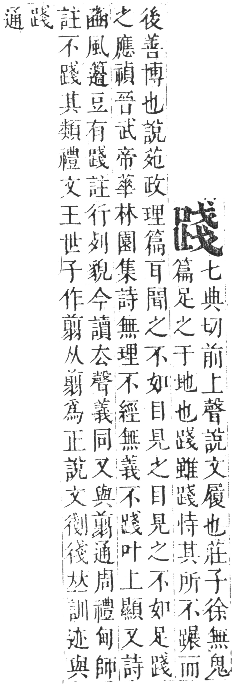 踐
七典切前上聲說文履也莊子徐無鬼
篇足之于地也踐雖踐恃其所不蹍而
後善博也說苑政理篇耳聞之不如目見之目見之不如足踐
之應禎晉武帝華林園集詩無理不經無義不踐叶上顯又詩
豳風籩豆有踐註行列貌今讀去聲義同又與翦通周禮甸師
註不踐其類禮文王世子作翦从翦爲正說文後𠀤訓迹與
踐
通